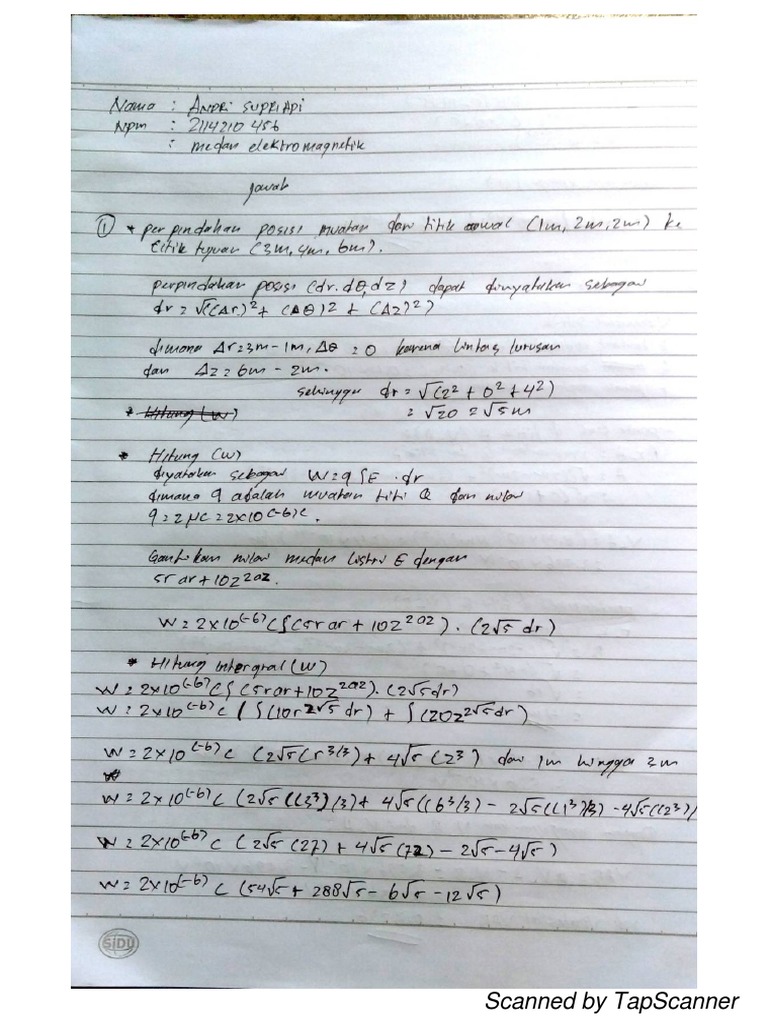 Nama : ANDRI SUPRIADI
Npm : 2114210 456
: medan elektromagnetik
Jawab
① * perpindahan posisi muatan dari titik awal (1m, 2m, 2m) ke
titik tujuan (3m, 4m, 6m).
perpindahan posisi (dr. dθ, dz) dapat dinyatakan sebagai
dr = √((Δr)² + (Δθ)2 + (Δz)2)
dimana Δr = 3m - 1m, Δθ = 0 karena lintas lurusan
dan Δz = 6m - 2m.
sehingga dr = √(2² + 0² + 4²)
* Hitung (W) = √20 = √5 m
* Hitung (W)
diyatakan sebagai W = q ∫E · dr
dimana q adalah muatan titi Q dan nilai
q = 2 μC = 2×10^(-6) C.
Gantikan nilai medan listri E dengan
5r ar + 10z^2az.
W = 2×10^(-6) C ∫(5r ar + 10z^2az) · (2√5 dr)
* Hitung intergral (W)
W = 2×10^(-6) C ∫ (5r ar + 10z^2az) · (2√5 dr)
W = 2×10^(-6) C (∫(10r^2√5 dr) + ∫(20z^2√5 dr)
W = 2×10^(-6) C (2√5 (r^3/3) + 4√5 (z^3) dari 1m hingga 3m
W = 2×10^(-6) C (2√5 ((3³)/3) + 4√5 ((6³/3) - 2√5 ((1³)/3) - 4√5 ((2³)/
W = 2×10^(-6) C (2√5 (27) + 4√5 (72) - 2√5 - 4√5)
W = 2×10^(-6) C (54√5 + 288√5 - 6√5 - 12√5)
SiDU
Scanned by TapScanner